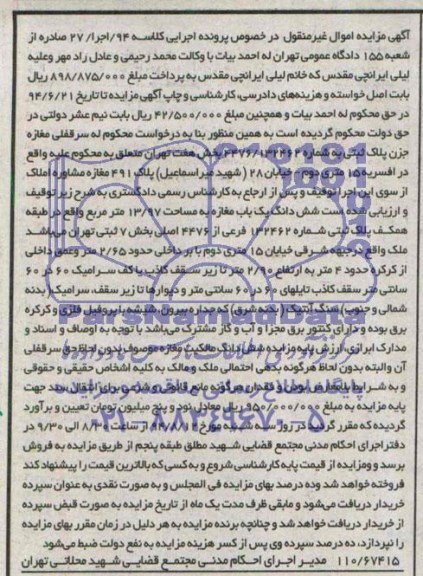 آگهی مزایده اموال غیرمنقول در خصوص پرونده اجرایی کلاسه ۹۴/اجرا/ ۲۷ صادره از
شعبه ۱۵۵ دادگاه عمومی تهران له احمد بیات با وکالت محمد رحیمی و عادل راد مهر وعلیه
لیلی ایرانچی مقدس که خانم لیلی ایرانچی مقدس به پرداخت مبلغ ۸۹۸/۸۷۵/۰۰۰ ریال
بابت اصل خواسته و هزینه‌های دادرسی، کارشناسی و چاپ آگهی مزایده تا تاریخ ۹۴/۶/۲۱
در حق محکوم له احمد بیات و همچنین مبلغ ۴۲/۵۰۰/۰۰۰ بابت نیم عشر دولتی در
حق دولت محکوم گردیده است به همین منظور بنا به درخواست محکوم له سرقفلی مغازه
جزن پلاک ثبتی به شماره ۴۴۷۶/۱۳۲۴۶۲ بخش هفت تهران متعلق به محکوم علیه واقع
در افسریه ۱۵ متری دوم - خیابان ۲۸ (شهید میراسماعیل) پلاک ۴۹۱ مغازه مشاوره املاک
از سوی این اجرا توقیف و پس از ارجاع به کارشناس رسمی دادگستری به شرح زیر توقیف
و ارزیابی شده است شش دانگ یک باب مغازه به مساحت ۱۳/۹۷ متر مربع واقع در طبقه
همکف پلاک ثبتی شماره ۱۳۲۴۶۲ فرعی از ۴۴۷۶ اصلی بخش ۷ ثبتی تهران می‌باشد
ملک واقع در جهه شرقی خیابان ۱۵ متری دوم با بر داخلی حدود ۲/۶۵ متر وعمق داخلی
از کرکره حدود ۴ متر به ارتفاع ۲/۹۰ متر تا زیر سقف کاذب با کف سرامیک ۶۰ در ۶۰
سانتی متر سقف کاذب تایلهای ۶۰ در ۶۰ سانتی متر و دیوارها تا زیر سقف، سرامیک( بدنه
شمالی و جنوبی) سنگ آنتیک (بدنه شرق) که جداره بیرون شیشه با پروفیل فلزی و کرکره
برق بوده و دارای کنتور برق مجزا و آب و گاز مشترک می‌باشد با توجه به اوصاف و اسناد و
مدارک ابرازی، ارزش پایه مزایده شش دانگ مالکیت مغازه موصوف بدون لحاظ حق سرقفلی
آن والبته بدون لحاظ هرگونه بدهی احتمالی ملک و مالک به کلیه اشخاص حقیقی و حقوقی
و به شرط بلامعارض بودن و فقدان هرگونه مانع قانونی و شرعی برای انتقال سند جهت
پایه مزایده به مبلغ ریال معادل نود و پنج میلیون تومان تعیین و برآورد
گردیده که مقرر گردید در روز سه شنبه مورخ از ساعت ۸/۳۰ الی ۹/۳۰ در
دفتر اجرای احکام مدنی مجتمع قضایی شهید مطلق طبقه پنجم از طریق مزایده به فروش
برسد و ومزایده از قیمت پایه کارشناسی شروع و به کسی که بالاترین قیمت را پیشنهاد کند
فروخته خواهد شد وده درصد بهای مزایده فی المجلس و به صورت نقدی به عنوان سپرده
خریدار دریافت می‌شود و مابقی ظرف مدت یک ماه از تاریخ مزایده به صورت قبض سپرده
از خریدار دریافت خواهد شد و چنانچه برنده مزایده به هر دلیل در زمان مقرر بهای مزایده
را نپردازد، ده درصد سپرده وی پس از کسر هزینه مزایده به نفع دولت ضبط می‌شود
۱۱۰/۶۷۴۱۵ مدیر اجرای احکام مدنی مجتمع قضایی شهید محلاتی تهران